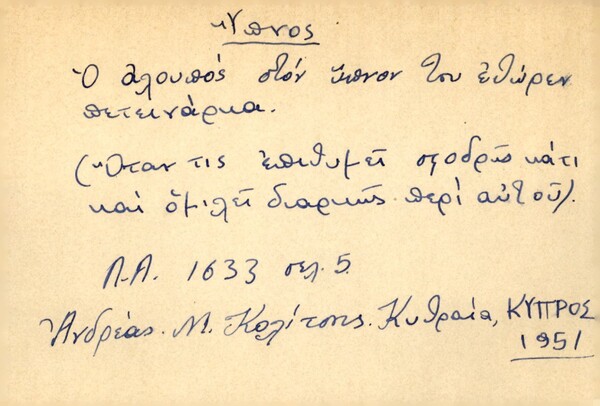 Ὕπνος
Ὁ ἀλουπός στόν ὕπνον του ἐθώρεν
πετεινάρκα.
(Ὅταν τις ἐπιθυμεῖ σφοδρῶς κάτι
καί ὁμιλεῖ διαρκῶς περί αὐτοῦ).
Λ.Α. 1633 σελ. 5.
Ἀνδρέας Μ. Κολίτσης. Κυθραία, ΚΥΠΡΟΣ
1951